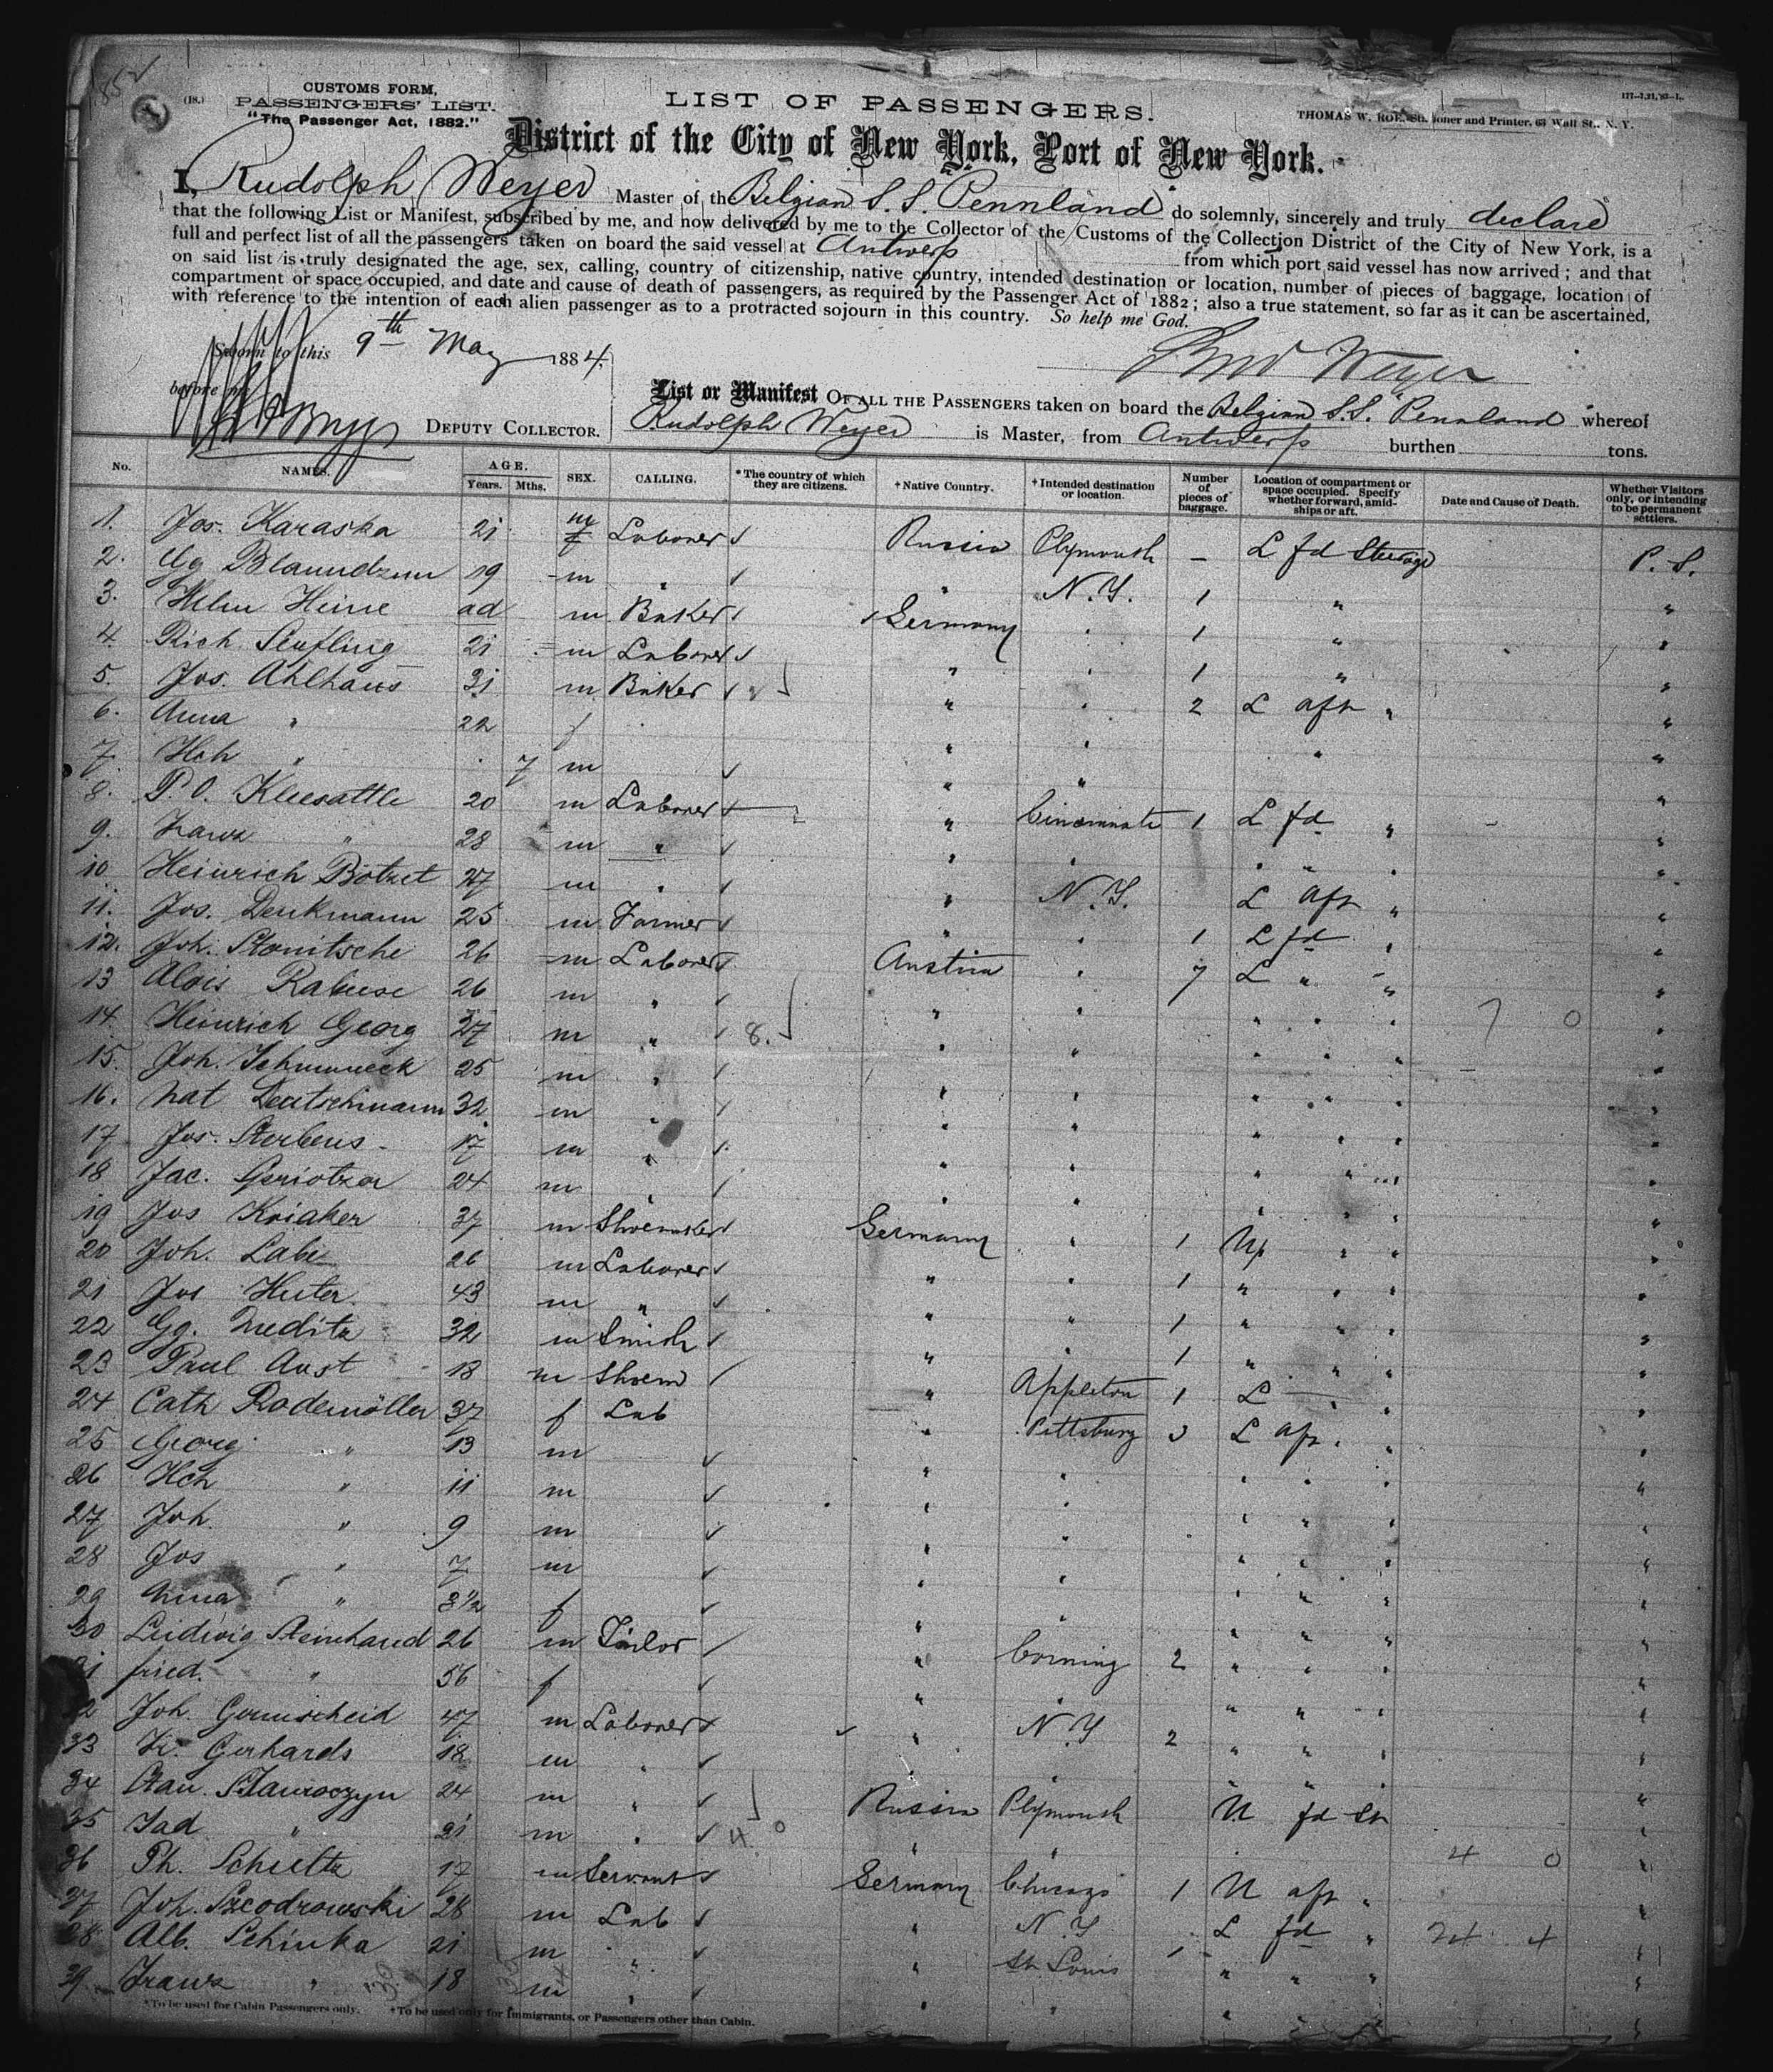 CUSTOMS FORM,
PASSENGERS' LIST.
"The Passenger Act, 1882."
(18.)
LIST OF PASSENGERS.
THOMAS W. ROE, Stationer and Printer, 63 Wall St., N. Y.
District of the City of New York, Port of New York.
I, Rudolph Weyer Master of the Belgian S.S. Pennland do solemnly, sincerely and truly declare
that the following List or Manifest, subscribed by me, and now delivered by me to the Collector of the Customs of the Collection District of the City of New York, is a
full and perfect list of all the passengers taken on board the said vessel at Antwerp from which port said vessel has now arrived; and that
on said list is truly designated the age, sex, calling, country of citizenship, native country, intended destination or location, number of pieces of baggage, location of
compartment or space occupied, and date and cause of death of passengers, as required by the Passenger Act of 1882; also a true statement, so far as it can be ascertained,
with reference to the intention of each alien passenger as to a protracted sojourn in this country. So help me God.
Sworn to this 9th May 1884.
Rud Weyer
before me
DEPUTY COLLECTOR.
List or Manifest OF ALL THE PASSENGERS taken on board the Belgian S.S. Pennland whereof
Rudolph Weyer is Master, from Antwerp burthen tons.
No. NAMES. AGE. Years. Mths. SEX. CALLING. *The country of which they are citizens. †Native Country. †Intended destination or location. Number of pieces of baggage. Location of compartment or space occupied. Specify whether forward, amidships or aft. Date and Cause of Death. Whether Visitors only, or intending to be permanent settlers.
1. Jos. Karaska 21 m Laborer Russia Plymouth - L fd Steerage P. S.
2. Gg 19 m " " N.Y. 1 " "
3. Heine ad m Baker Germany " 1 " "
4. Rich. 21 m Laborer " " 1 " "
5. Jos. Ahlhaus 31 m Baker " " 2 L aft " "
6. Anna " 22 f " " " "
7. Hch " 7 m " " "
8. P. O. Kleesattle 20 m Laborer " Cincinnati 1 L fd " "
9. Franz " 28 m " " " " " " "
10 Heinrich Botzet 27 m " " N.Y. L aft " "
11. Jos. Denkmann 25 m Farmer " " 1 L fd " "
12. Joh. Stonitsche 26 m Laborer Austria " 7 L " " "
13 Alois Rabuse 26 m " " " " " " "
14. Heinrich Georg 27 m " 8. " " " " " "
15. Joh. 25 m " " " " " " "
16. Mat Deutschmann 32 m " " " " " " "
17 Jos. Sterbens 17 m " " " " " " "
18 Jac. 24 m " " " " " " "
19 Jos Kriaker 37 m Shoemaker Germany " 1 Up " " "
20 Joh. Labe 26 m Laborer " " 1 " " " "
21 Jos Huter 43 m " " " 1 " " " "
22 Gg. 32 m Smith " " 1 " " " "
23 Paul Aust 18 m Shoem " Appleton 1 L " " "
24 Cath Rodemöller 37 f Lab " Pittsburg 3 L aft " "
25 Georg " 13 m " " " " " "
26 Hch " 11 m " " " " " "
27 Joh. " 9 m " " " " " "
28 Jos " 7 m " " " " " "
29 Anna " 3½ f " " " " " "
30 Ludwig Steinhard 26 m Tailor " Corning 2 " " " "
31 fried. " 56 f " " " " " "
32 Joh. 47 m Laborer " N.Y 2 " " " "
33 Gerhards 18 m " " " " " " "
34 24 m " Russia Plymouth U fd St "
35 " 21 m " 4 0 " " 4 0 "
36 Ph. Schultz 17 m Servant Germany Chicago 1 U aft " "
37 Joh. Szcodrowski 28 m Lab " N.Y L fd " 24 4 "
38 Alb. Schinka 21 m " " St Louis 1 " " " "
39 Franz " 18 m " " " " " " "
*To be used for Cabin Passengers only. †To be used only for Immigrants, or Passengers other than Cabin.